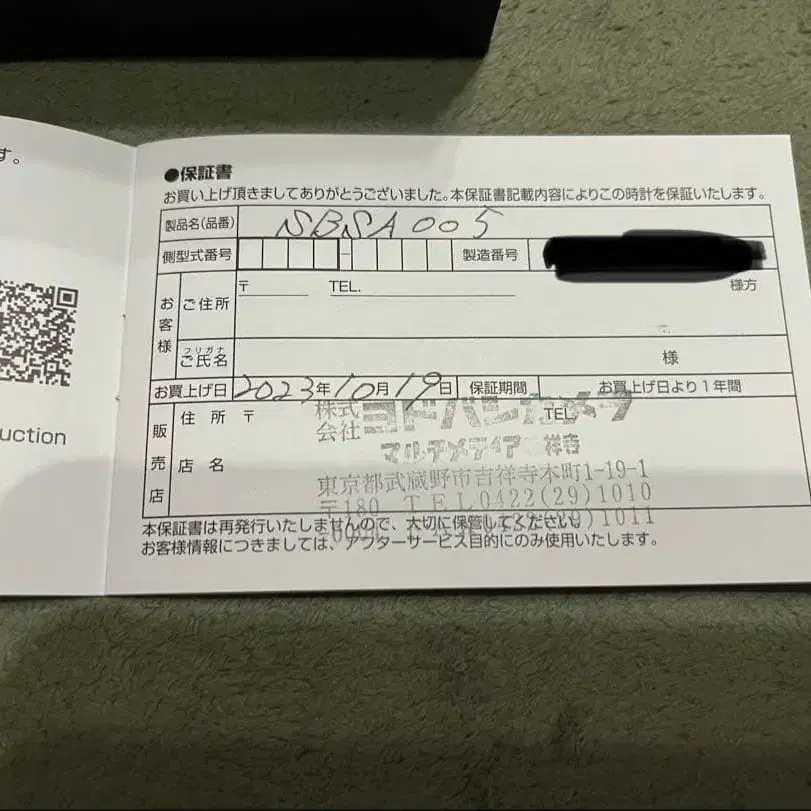 す。
uction
●保証書
お買い上げ頂きましてありがとうございました。本保証書記載内容によりこの時計を保証いたします。
製品名(品番) SBSA005
側型式番号 - 製造番号
お客様 ご住所 〒 TEL. 様方
フリガナ
ご氏名 様
お買上げ日 2023年10月19日 保証期間 お買上げ日より1年間
販売店 住所 〒 TEL.
店名
株式会社 ヨドバシカメラ
マルチメディア 祥寺
東京都武蔵野市吉祥寺本町1-19-1
〒180 TEL0422(29)1010
)1011
本保証書は再発行いたしませんので、大切に保管してください。
お客様情報につきましては、アフターサービス目的にのみ使用いたします。